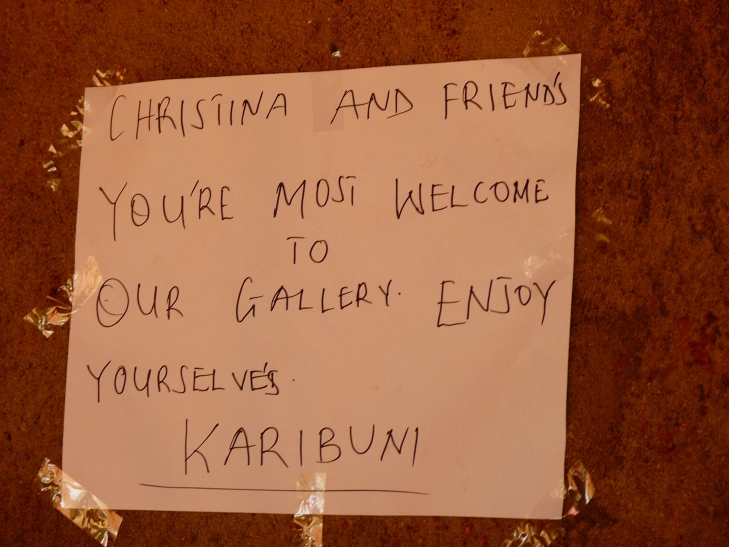 CHRISTINA AND FRIEND'S
YOU'RE MOST WELCOME
TO
OUR GALLERY. ENJOY
YOURSELVE'S.
KARIBUNI